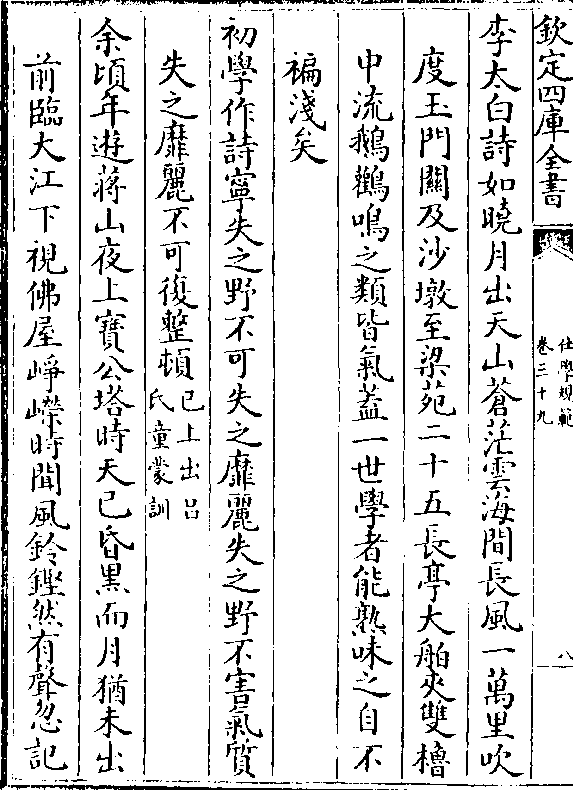 欽定四庫全書
仕學規範
卷三十九
八
李太白詩如曉月出天山蒼茫雲海間長風一萬里吹
度玉門關及沙墩至梁苑二十五長亭大舶夾雙櫓
中流鵝鸛鳴之類皆氣蓋一世學者能熟味之自不
褊淺矣
初學作詩寧失之野不可失之靡麗失之野不害氣質
失之靡麗不可復整頓已上出呂氏童蒙訓
余頃年遊蔣山夜上寶公塔時天已昏黑而月猶未出
前臨大江下視佛屋崢嶸時聞風鈴鏗然有聲忽記